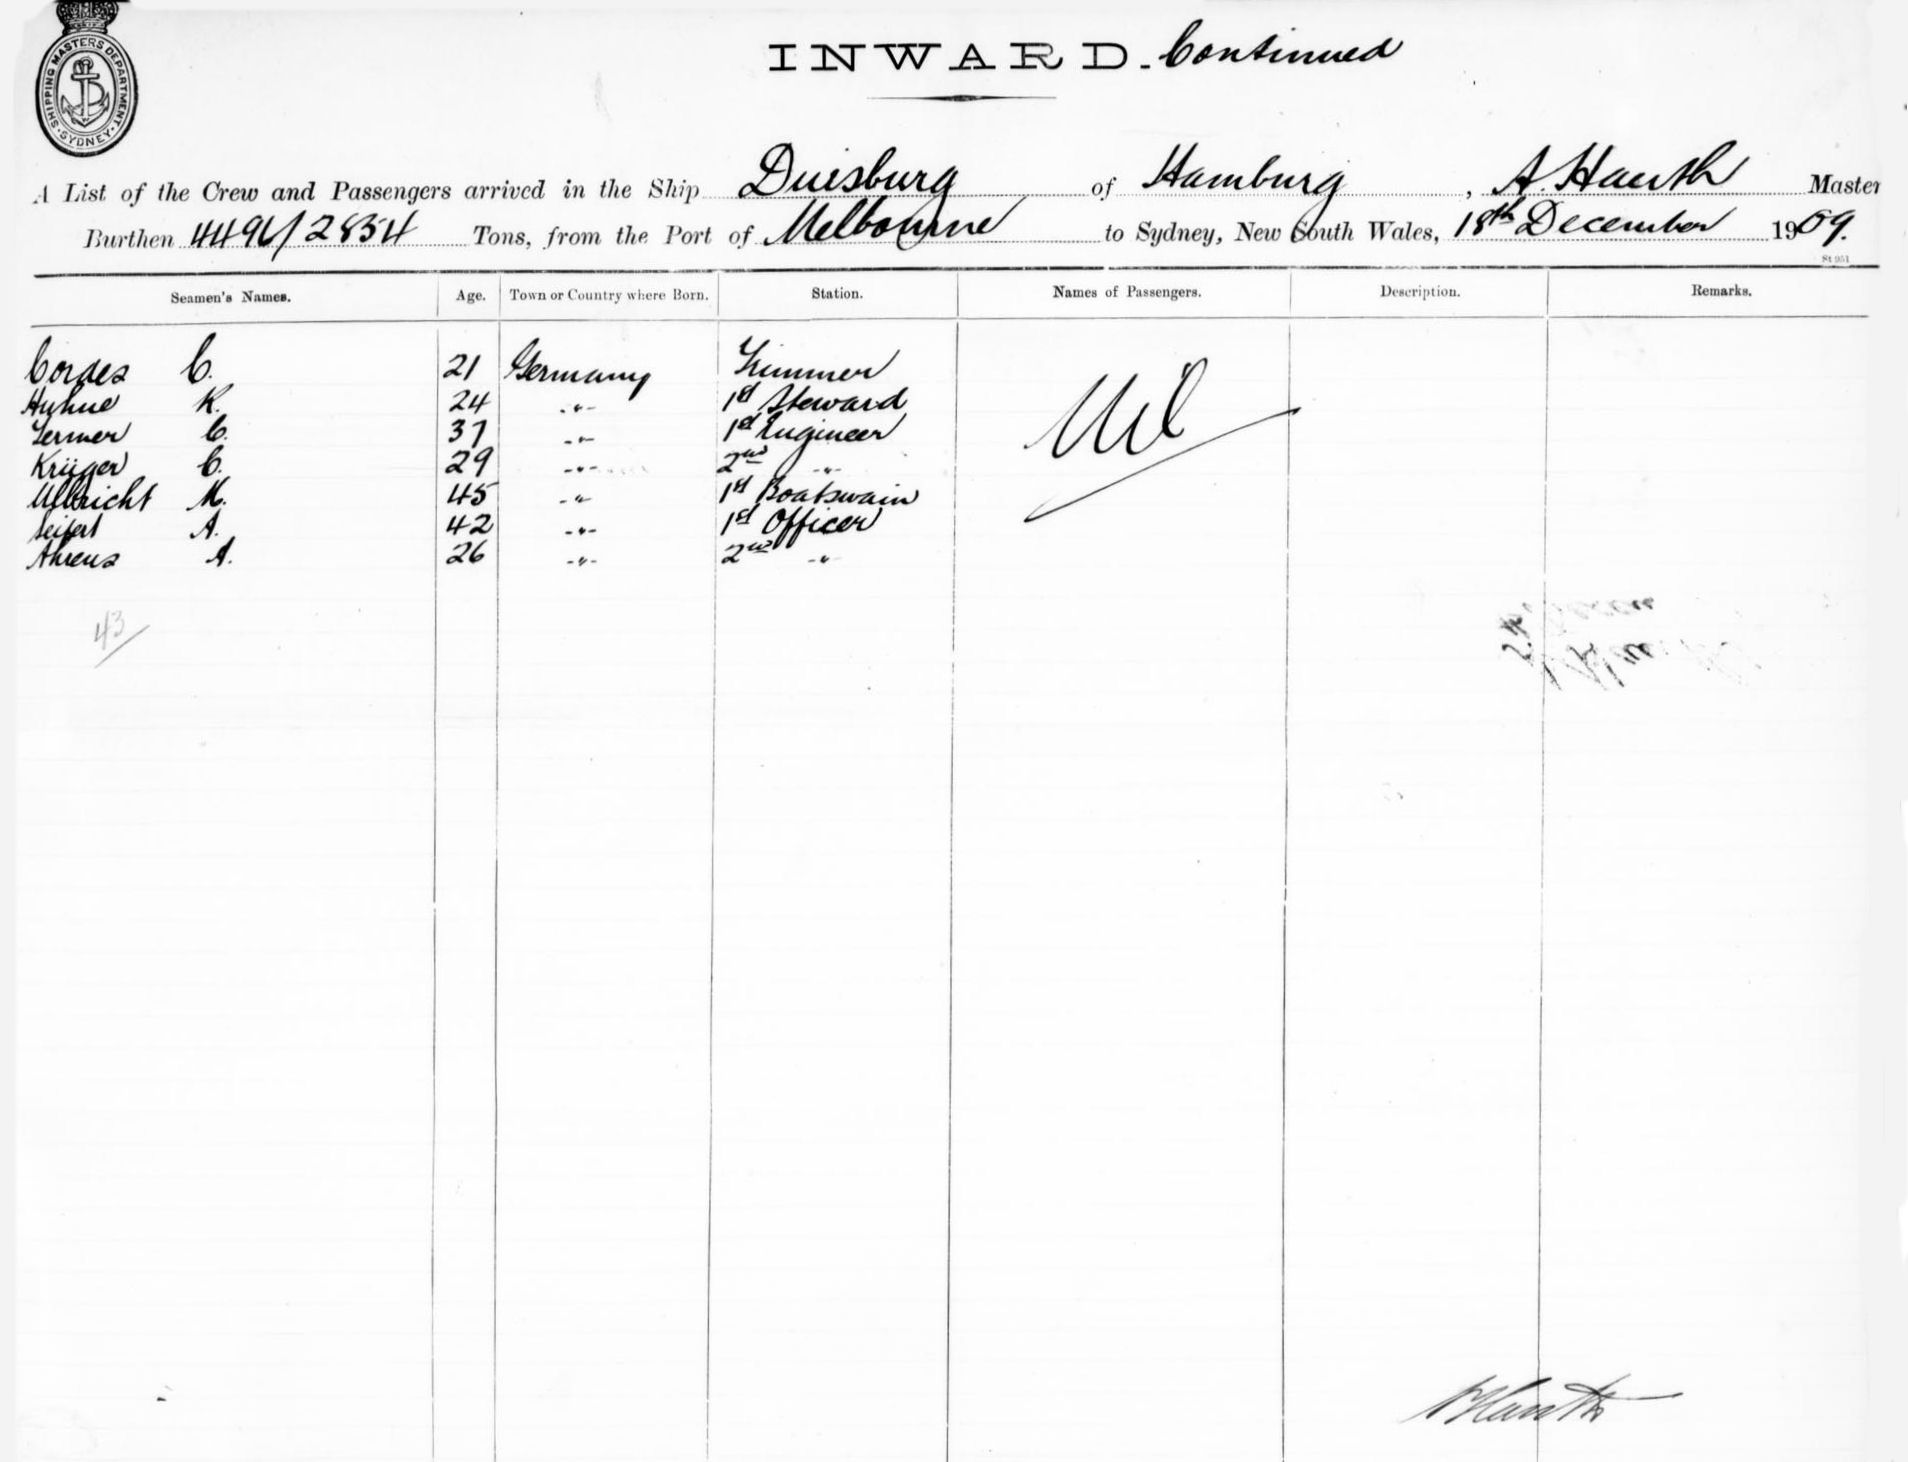 SHIPPING MASTERS DEPARTMENT · SYDNEY ·
INWARD. Continued
A List of the Crew and Passengers arrived in the Ship Duisburg of Hamburg, A. Hauth Master
Burthen 4496/2834 Tons, from the Port of Melbourne to Sydney, New South Wales, 18th December 1909.
St 951
Seamen's Names. Age. Town or Country where Born. Station. Names of Passengers. Description. Remarks.
Cordes C. 21 Germany Trimmer
Huhne K. 24 -"- 1st Steward Nil
Termer C. 37 -"- 1st Engineer
Krüger C. 29 -"- 2nd -"-
Ulbricht M. 45 -"- 1st Boatswain
Seifert A. 42 -"- 1st Officer
Ahrens A. 26 -"- 2nd -"-
43
A Hauth